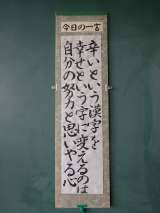 今日の一言
辛いという漢字を
幸せという字に変えるのは
自分の努力と思いやる心